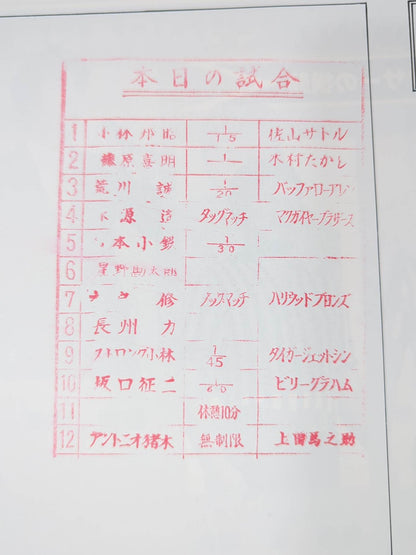 本日の試合
1 小林邦昭 1/15 佐山サトル
2 藤原喜明 1 木村たかし
3 荒川 誠 1/20 バッファローアレン
4 源 タッグマッチ マクガイヤーブラザーズ
5 本小鉄 1/30
6 星野勘太郎
7 修 タッグマッチ ハリウッドブロンズ
8 長州 力
9 ストロング小林 1/45 タイガージェットシン
10 坂口征二 1/60 ビリーグラハム
11 休憩10分
12 アントニオ猪木 無制限 上田馬之助